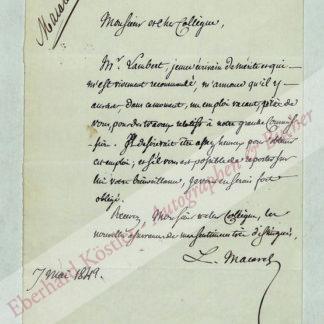 Macarel
Monsieur et cher Collègue,
Mr. Lambert, jeune écrivain de mérite et qui
m'est vivement recommandé, m'annonce qu'il y
aurait dans ce moment, un emploi vacant, près de
vous, pour des travaux relatifs à notre grande Commis
sion. Il désirerait être assez heureux pour obtenir
cet emploi; et s'il vous est possible de reporter sur
lui votre bienveillance, je vous en serai fort
obligé.
Recevez, Monsieur et cher Collègue, les
nouvelles assurances de mes sentiments très distingués,
L. Macarel
7 Mai 1849.
Eberhard Köstler Autographen & Bücher